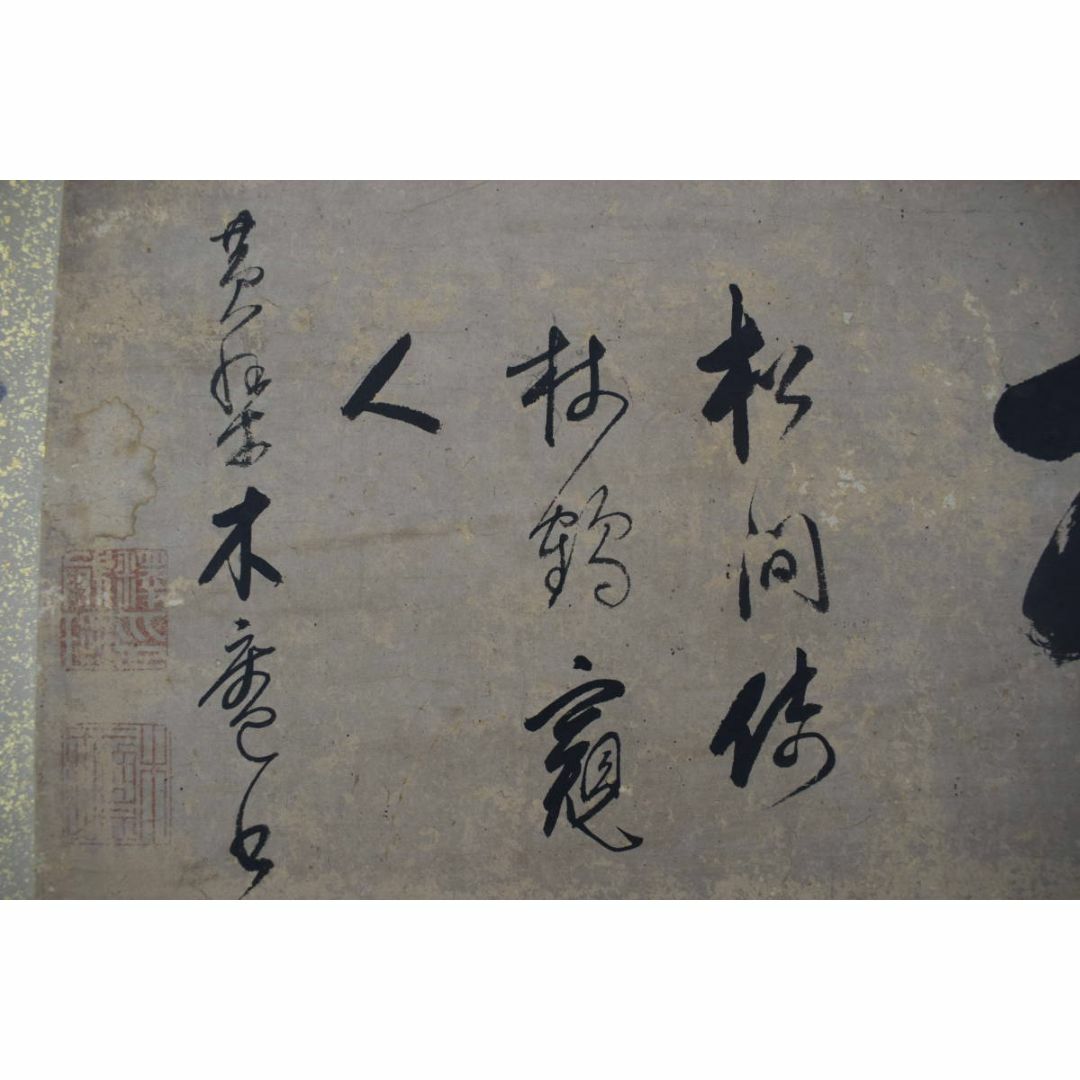 松間倚
杖鶴窺
人
黄檗木菴書